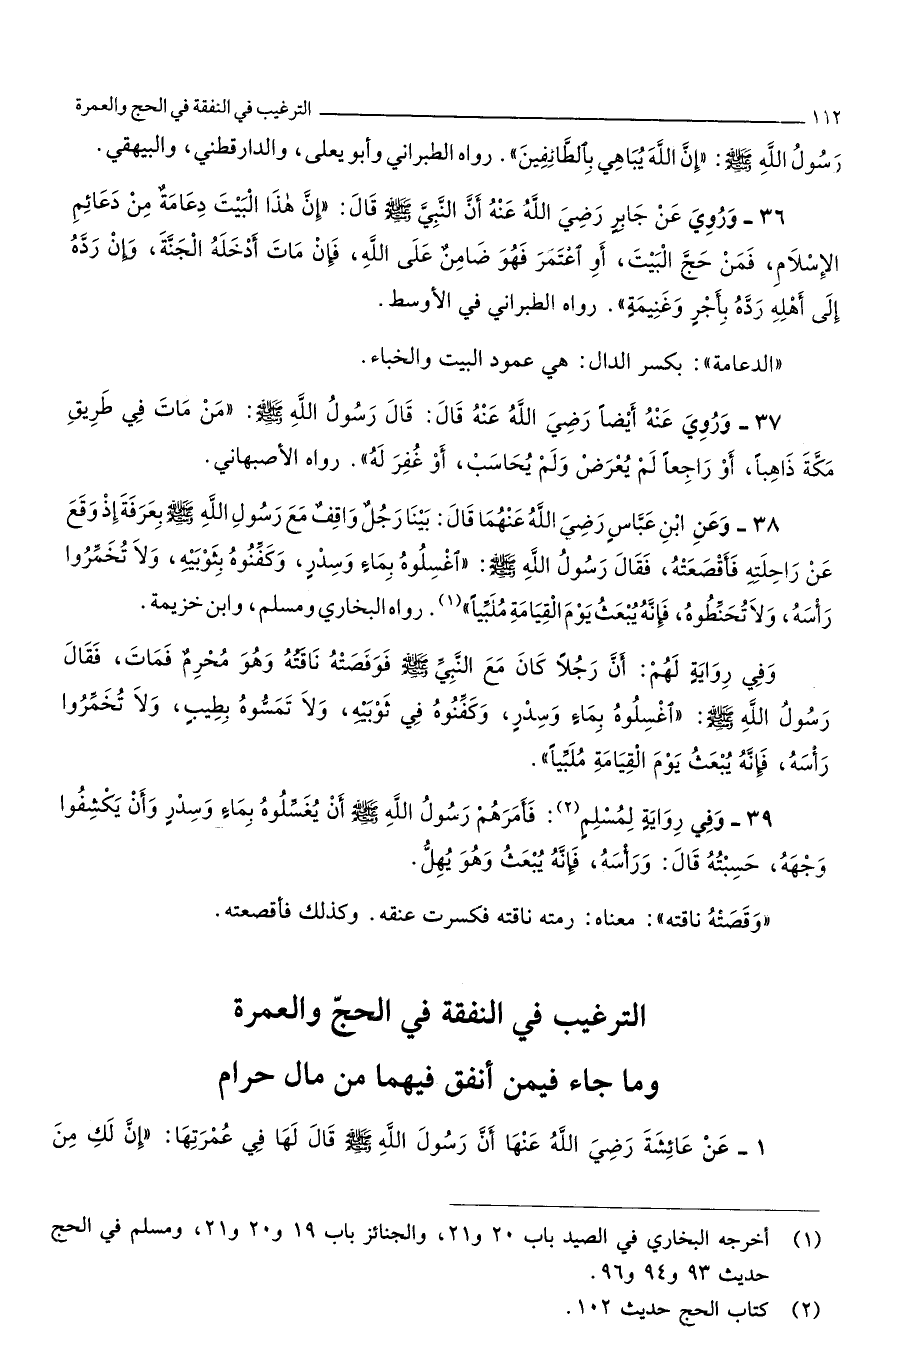 ١١٢ الترغيب في النفقة في الحج والعمرة
رَسُولُ اللَّهِ ﷺ: «إِنَّ اللَّهَ يُبَاهِي بِٱلطَّائِفِينَ». رواه الطبراني وأبو يعلى، والدارقطني، والبيهقي.
٣٦ ـ وَرُوِيَ عَنْ جَابِرٍ رَضِيَ اللَّهُ عَنْهُ أَنَّ النَّبِيَّ ﷺ قَالَ: «إِنَّ هٰذَا الْبَيْتَ دِعَامَةٌ مِنْ دَعَائِمِ
الإِسْلاَمِ، فَمَنْ حَجَّ الْبَيْتَ، أَوِ ٱعْتَمَرَ فَهُوَ ضَامِنٌ عَلَى اللَّهِ، فَإِنْ مَاتَ أَدْخَلَهُ الْجَنَّةَ، وَإِنْ رَدَّهُ
إِلَى أَهْلِهِ رَدَّهُ بِأَجْرٍ وَغَنِيمَةٍ». رواه الطبراني في الأوسط.
«الدعامة»: بكسر الدال: هي عمود البيت والخباء.
٣٧ ـ وَرُوِيَ عَنْهُ أَيْضاً رَضِيَ اللَّهُ عَنْهُ قَالَ: قَالَ رَسُولُ اللَّهِ ﷺ: «مَنْ مَاتَ فِي طَرِيقِ
مَكَّةَ ذَاهِباً، أَوْ رَاجِعاً لَمْ يُعْرَضْ وَلَمْ يُحَاسَبْ، أَوْ غُفِرَ لَهُ». رواه الأصبهاني.
٣٨ ـ وَعَنِ ابْنِ عَبَّاسٍ رَضِيَ اللَّهُ عَنْهُمَا قَالَ: بَيْنَا رَجُلٌ وَاقِفٌ مَعَ رَسُولِ اللَّهِ ﷺ بِعَرَفَةَ إِذْ وَقَعَ
عَنْ رَاحِلَتِهِ فَأَقْصَعَتْهُ، فَقَالَ رَسُولُ اللَّهِ ﷺ: «ٱغْسِلُوهُ بِمَاءٍ وَسِدْرٍ، وَكَفِّنُوهُ بِثَوْبَيْهِ، وَلاَ تُخَمِّرُوا
رَأْسَهُ، وَلاَ تُحَنِّطُوهُ، فَإِنَّهُ يُبْعَثُ يَوْمَ الْقِيَامَةِ مُلَبِّياً»(١). رواه البخاري ومسلم، وابن خزيمة.
وَفِي رِوَايَةٍ لَهُمْ: أَنَّ رَجُلاً كَانَ مَعَ النَّبِيِّ ﷺ فَوَقَصَتْهُ نَاقَتُهُ وَهُوَ مُحْرِمٌ فَمَاتَ، فَقَالَ
رَسُولُ اللَّهِ ﷺ: «ٱغْسِلُوهُ بِمَاءٍ وَسِدْرٍ، وَكَفِّنُوهُ فِي ثَوْبَيْهِ، وَلاَ تَمَسُّوهُ بِطِيبٍ، وَلاَ تُخَمِّرُوا
رَأْسَهُ، فَإِنَّهُ يُبْعَثُ يَوْمَ الْقِيَامَةِ مُلَبِّياً».
٣٩ ـ وَفِي رِوَايَةٍ لِمُسْلِمٍ(٢): فَأَمَرَهُمْ رَسُولُ اللَّهِ ﷺ أَنْ يُغَسِّلُوهُ بِمَاءٍ وَسِدْرٍ وَأَنْ يَكْشِفُوا
وَجْهَهُ، حَسِبْتُهُ قَالَ: وَرَأْسَهُ، فَإِنَّهُ يُبْعَثُ وَهُوَ يُهِلُّ.
«وَقَصَتْهُ ناقته»: معناه: رمته ناقته فكسرت عنقه. وكذلك فأقصعته.
الترغيب في النفقة في الحجّ والعمرة
وما جاء فيمن أنفق فيهما من مال حرام
١ ـ عَنْ عَائِشَةَ رَضِيَ اللَّهُ عَنْهَا أَنَّ رَسُولَ اللَّهِ ﷺ قَالَ لَهَا فِي عُمْرَتِهَا: «إِنَّ لَكِ مِنَ
(١) أخرجه البخاري في الصيد باب ٢٠ و٢١، والجنائز باب ١٩ و٢٠ و٢١، ومسلم في الحج
حديث ٩٣ و٩٤ و٩٦.
(٢) كتاب الحج حديث ١٠٢.